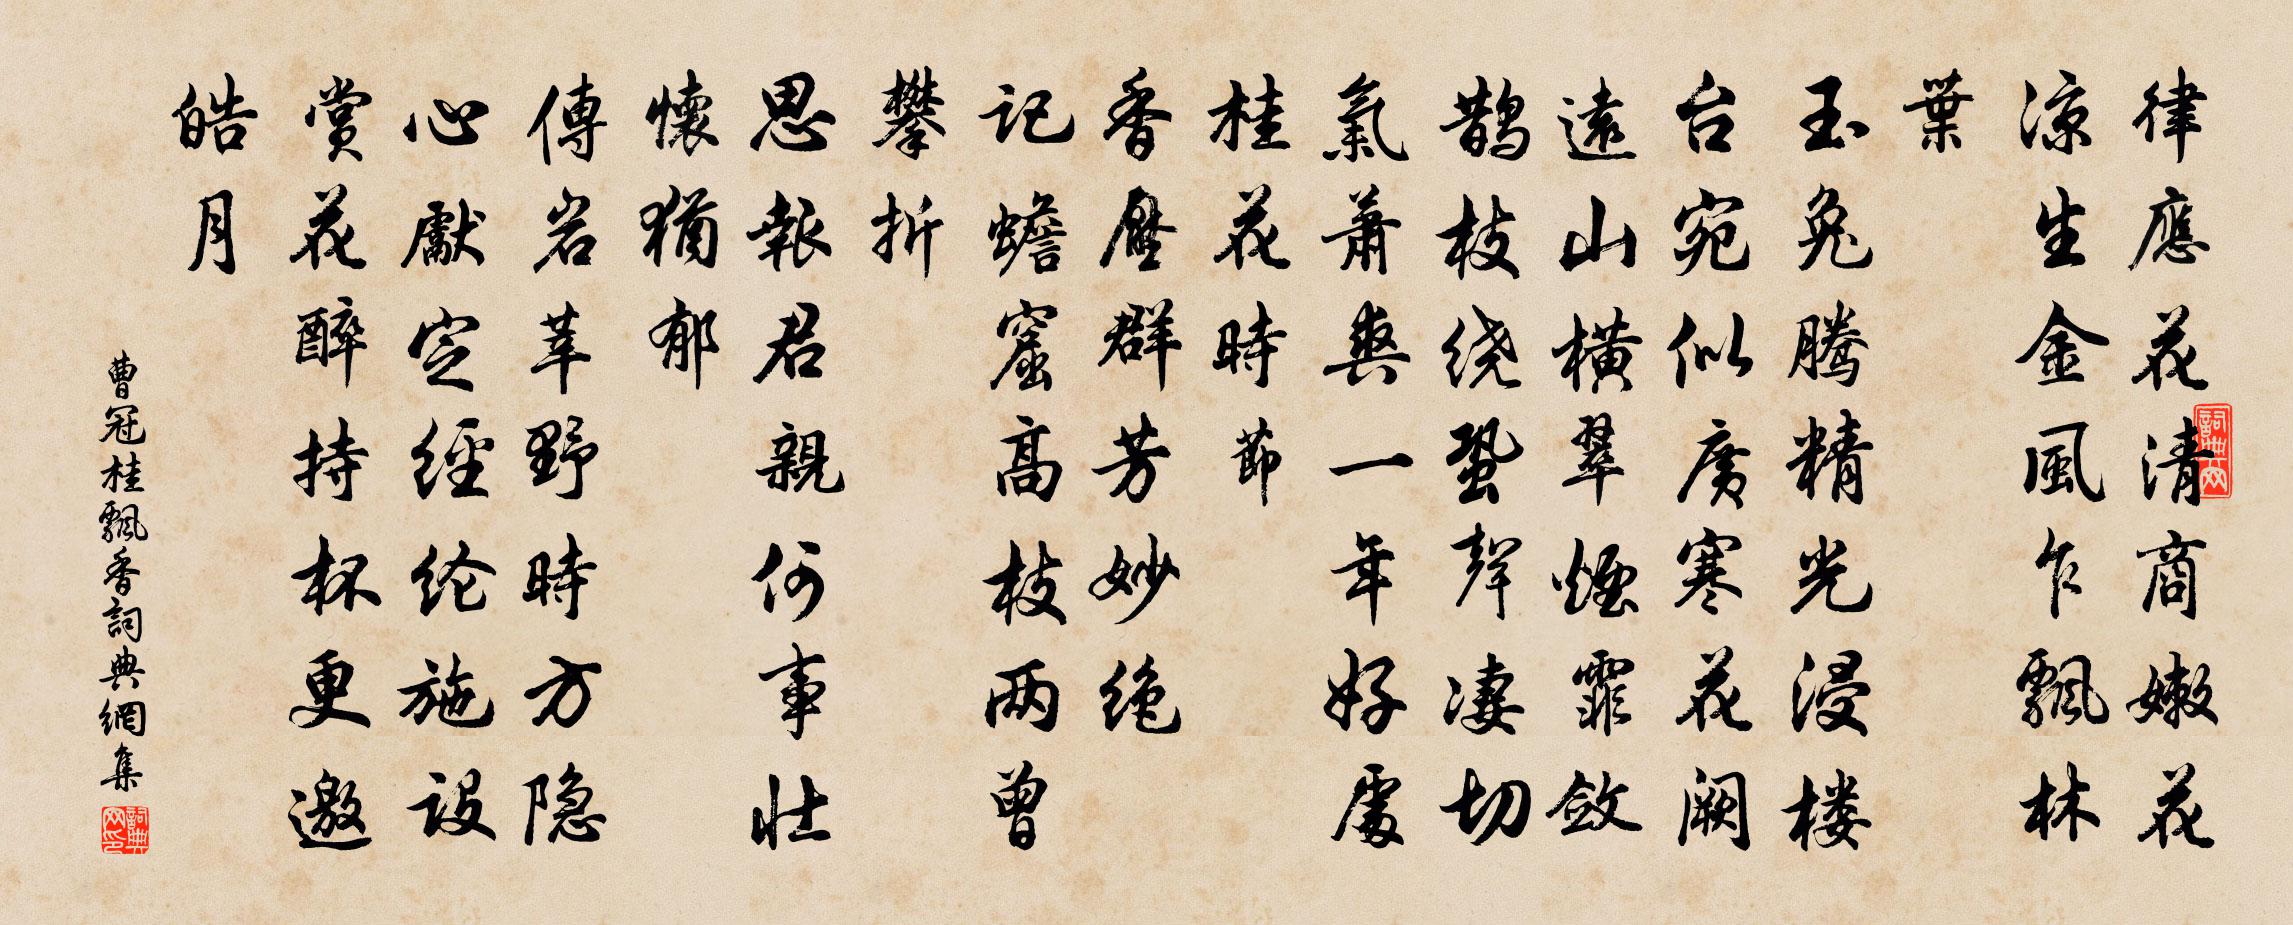 律應花清商嫩花
涼生金風乍飄林
葉
玉兔騰精光浸楼
台宛似廣寒花闕
遠山橫翠煙霏斂
鵲枝绕蛩聲凄切
氣蕭爽一年好處
桂花時節
香壓群芳妙绝
记蟾窟高枝两曾
攀折
思報君親何事壮
懷猶郁
傳岩莘野時方隐
心獻定經纶施设
賞花醉持杯更邀
皓月
曹冠桂飄香詞典網集
詞典网
詞典网印